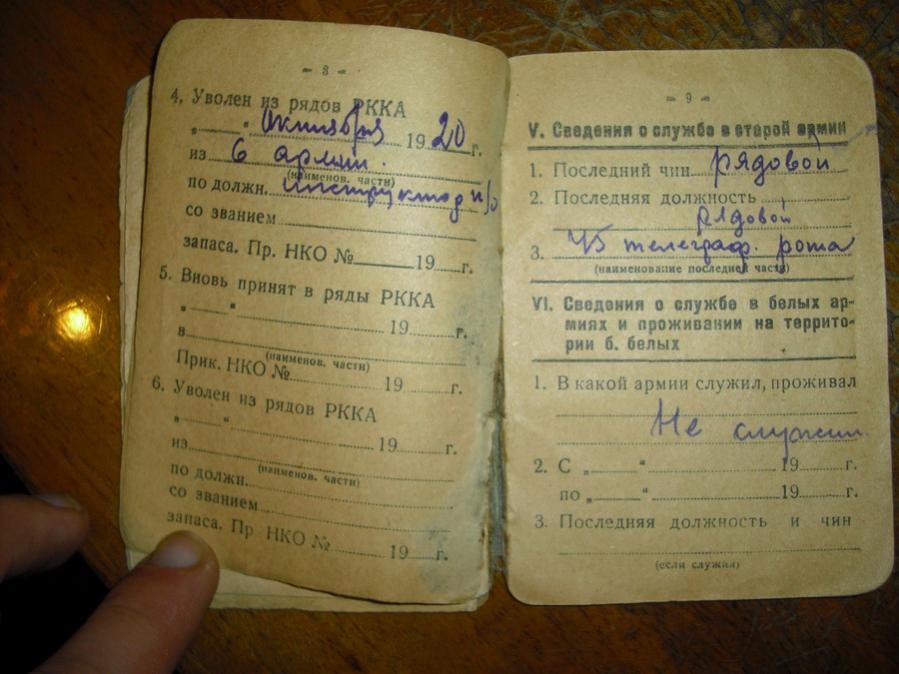 - 8 -
4. Уволен из рядов РККА
„ “ Октября 1920 г.
из 6 армии.
(наименов. части)
по должн. инструктор
со званием
запаса. Пр. НКО № 19 г.
5. Вновь принят в ряды РККА
„ “ 19 г.
в
(наименов. части)
Прик. НКО № 19 г.
6. Уволен из рядов РККА
„ “ 19 г.
из
(наименов. части)
по должн.
со званием
запаса. Пр НКО № 19 г.
- 9 -
V. Сведения о службе в старой армии
1. Последний чин рядовой
2. Последняя должность
рядовой
3. телеграф. рота
(наименование последней части)
VI. Сведения о службе в белых ар-
миях и проживании на террито-
рии б. белых
1. В какой армии служил, проживал
Не служил
2. С „ “ 19 г.
по „ “ 19 г.
3. Последняя должность и чин
(если служил)